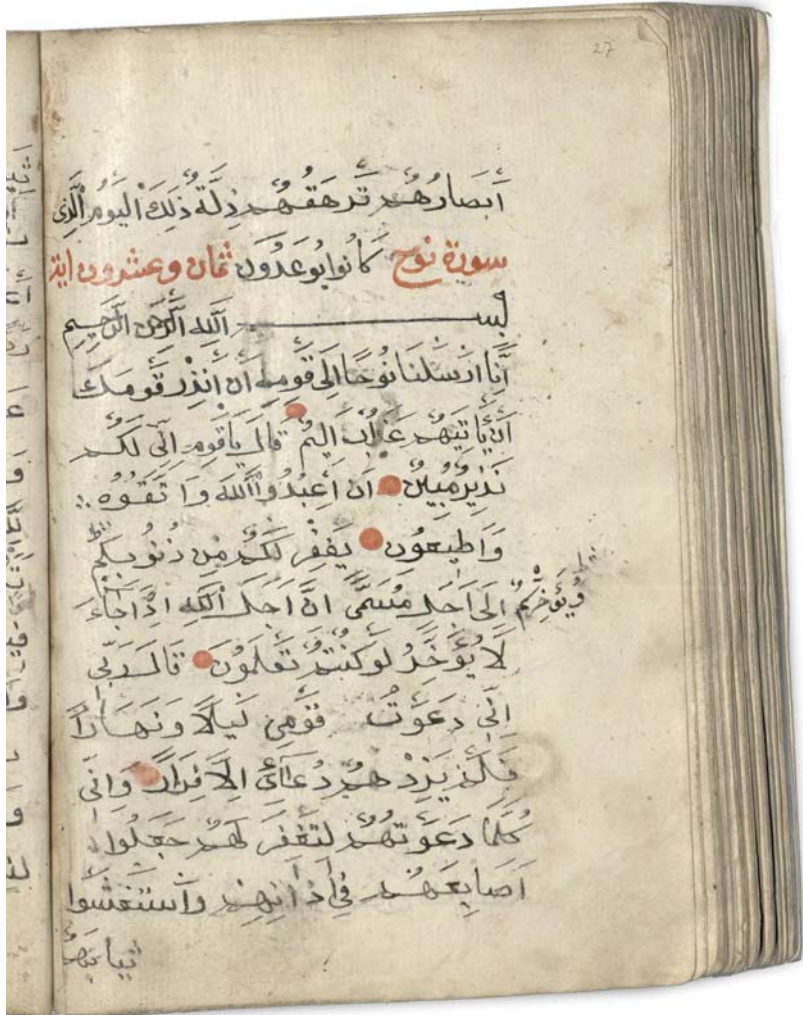 27
اَبصارُهُم تَرهَقُهُم ذِلَّةٌ ذٰلِكَ اليَومُ الَّذِى
سورة نوح كانوا يوعَدُونَ ثمان وعشرون اية
بســــــم الله الرَّحمن الرَّحيم
اِنَّا اَرسَلنَا نُوحًا اِلى قَومِهِ اَن اَنذِر قَومَكَ
اَن يَّاتِيَهُم عَذَابٌ اَلِيمٌ قَالَ يَاقَومِ اِنِّى لَكُم
نَذِيرٌ مُّبِينٌ اَنِ اعبُدُوا اللهَ وَاتَّقُوهُ
وَاَطِيعُونِ يَغفِر لَكُم مِن ذُنُوبِكُم
وَيُؤَخِّركُم اِلى اَجَلٍ مُسَمًّى اِنَّ اَجَلَ اللهِ اِذَا جَاءَ
لَا يُؤَخَّرُ لَو كُنتُم تَعلَمُونَ قَالَ رَبِّ
اِنِّى دَعَوتُ قَومِى لَيلًا وَنَهَارًا
فَلَم يَزِدهُم دُعَائِى اِلَّا فِرَارًا وَاِنِّى
كُلَّمَا دَعَوتُهُم لِتَغفِرَ لَهُم جَعَلُوا
اَصَابِعَهُم فِى اٰذَانِهِم وَاستَغشَوا
ثيابهم